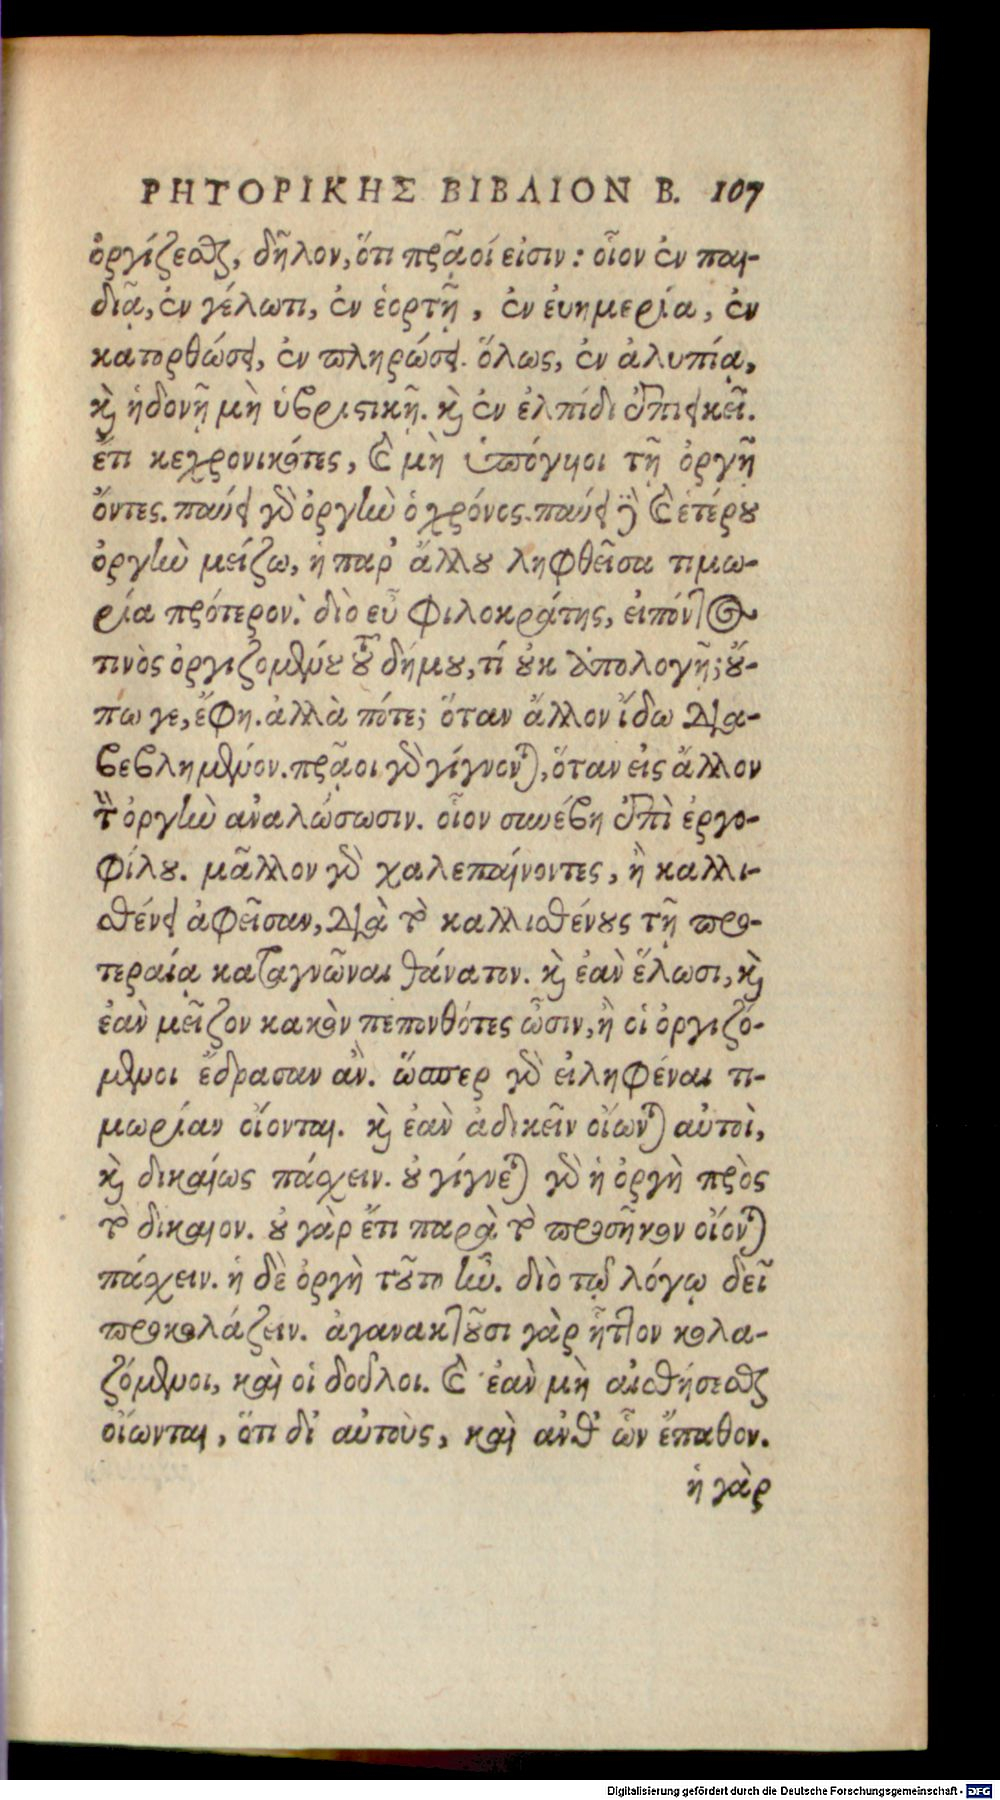 ΡΗΤΟΡΙΚΗΣ ΒΙΒΛΙΟΝ Β. 107
ὀργίζεσθαι, δῆλον, ὅτι πρᾷοί εἰσιν: οἷον ἐν παι-
διᾷ, ἐν γέλωτι, ἐν ἑορτῇ, ἐν ἐυημερία, ἐν
κατορθώσει, ἐν πληρώσει. ὅλως, ἐν ἀλυπίᾳ,
καὶ ἡδονῇ μὴ ὑβριστικῇ. καὶ ἐν ἐλπίδι ἐπιεικεῖ.
ἔτι κεχρονικότες, καὶ μὴ ὑπόγυιοι τῇ ὀργῇ
ὄντες. παύει γὰρ ὀργὴν ὁ χρόνος. παύει δὲ καὶ ἑτέρου
ὀργὴν μείζω, ἡ παρ' ἄλλου ληφθεῖσα τιμω-
ρία πρότερον. διὸ εὖ Φιλοκράτης, εἰπόντος
τινὸς ὀργιζομένου τοῦ δήμου, τί οὐκ ἀπολογῇ; οὔ-
πω γε, ἔφη. ἀλλὰ πότε; ὅταν ἄλλον ἴδω δια-
βεβλημένον. πρᾷοι γὰρ γίγνονται, ὅταν εἰς ἄλλον
τὴν ὀργὴν ἀναλώσωσιν. οἷον συνέβη ἐπὶ ἐργο-
φίλου. μᾶλλον γὰρ χαλεπαίνοντες, ἢ καλλι-
σθένει ἀφεῖσαν, διὰ τὸ καλλισθένους τῇ προ-
τεραίᾳ καταγνῶναι θάνατον. καὶ ἐὰν ἕλωσι, καὶ
ἐὰν μεῖζον κακὸν πεπονθότες ὦσιν, ἢ οἱ ὀργιζό-
μενοι ἔδρασαν ἄν. ὥσπερ γὰρ εἰληφέναι τι-
μωρίαν οἴονται. καὶ ἐὰν ἀδικεῖν οἴωνται αὐτοὶ,
καὶ δικαίως πάσχειν. οὐ γίγνεται γὰρ ἡ ὀργὴ πρὸς
τὸ δίκαιον. οὐ γὰρ ἔτι παρὰ τὸ προσῆκον οἴονται
πάσχειν. ἡ δὲ ὀργὴ τοῦτο ἦν. διὸ τῷ λόγῳ δεῖ
προκολάζειν. ἀγανακτοῦσι γὰρ ἧττον κολα-
ζόμενοι, καὶ οἱ δοῦλοι. καὶ ἐὰν μὴ αἰσθήσεσθαι
οἴωνται, ὅτι δι' αὐτοὺς, καὶ ἀνθ' ὧν ἔπαθον.
ἡ γὰρ
Digitalisierung gefördert durch die Deutsche Forschungsgemeinschaft - DFG